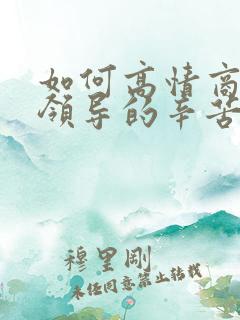 如何高情商
领导的辛苦
穆里刚
未经同意禁止转载